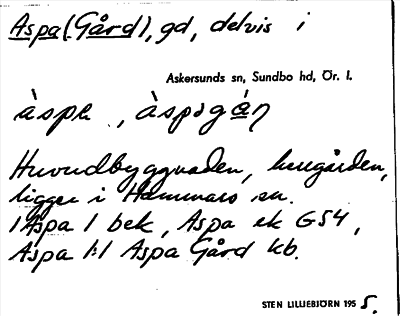 Aspa (Gård), gd, delvis i
Askersunds sn, Sundbo hd, Ör. l.
àspa, àspɑgán
Huvudbyggnaden, herrgården,
ligger i Hammars sn.
1 Aspa 1 bek, Aspa ek G54,
Aspa 1:1 Aspa Gård kb.
STEN LILLIEBJÖRN 1955.